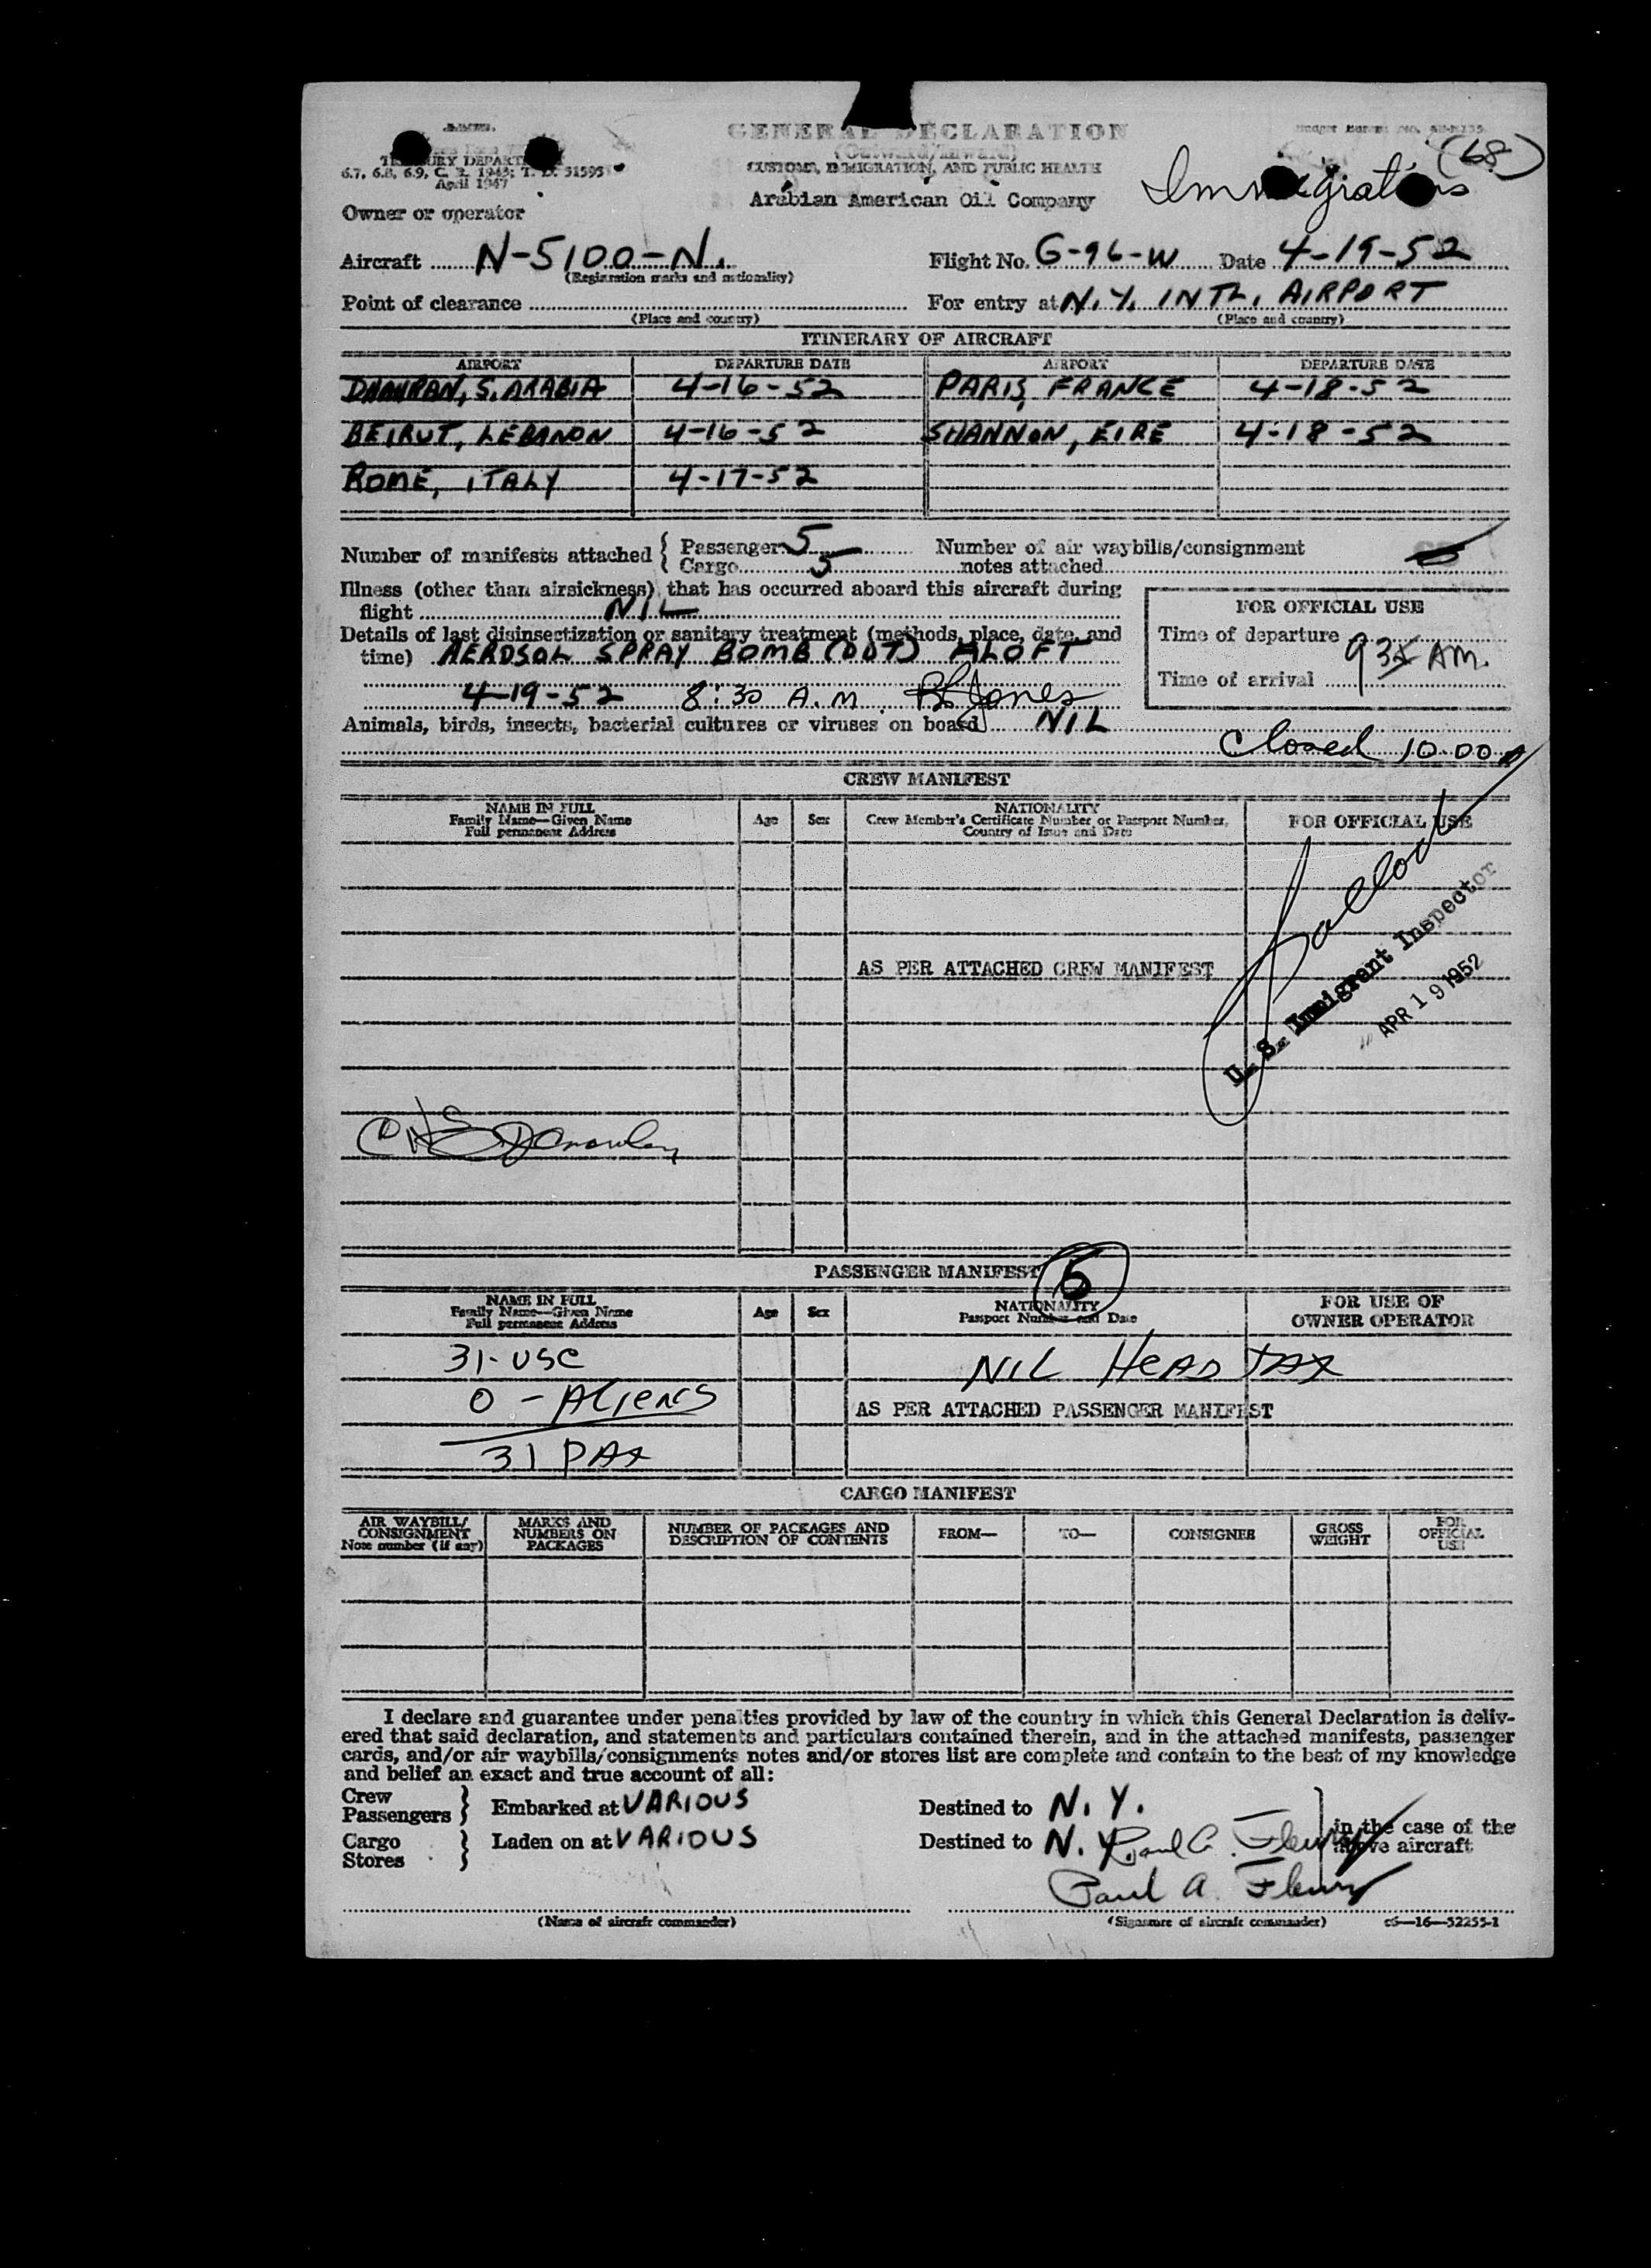 GENERAL DECLARATION
(Outward/Inward)
TREASURY DEPARTMENT
6.7, 6.8, 6.9, C. R. 1943; T. D. 51595
April 1947
CUSTOMS, IMMIGRATION, AND PUBLIC HEALTH
Immigration (68)
Owner or operator Arabian American Oil Company
Aircraft N-5100-N. Flight No. G-96-W Date 4-19-52
(Registration marks and nationality)
Point of clearance For entry at N.Y. INTL. AIRPORT
(Place and country) (Place and country)
ITINERARY OF AIRCRAFT
AIRPORT DEPARTURE DATE AIRPORT DEPARTURE DATE
DHAHRAN, S. ARABIA 4-16-52 PARIS, FRANCE 4-18-52
BEIRUT, LEBANON 4-16-52 SHANNON, EIRE 4-18-52
ROME, ITALY 4-17-52
Number of manifests attached { Passenger 5 Number of air waybills/consignment
Cargo 5 notes attached
Illness (other than airsickness) that has occurred aboard this aircraft during
flight NIL
FOR OFFICIAL USE
Details of last disinsectization or sanitary treatment (methods, place, date, and
time) AEROSOL SPRAY BOMB (DDT) ALOFT
Time of departure
935 AM.
Time of arrival
4-19-52 8:30 A.M. Jones
Animals, birds, insects, bacterial cultures or viruses on board NIL
Closed 10.00
CREW MANIFEST
NAME IN FULL
Family Name—Given Name
Full permanent Address
Age Sex
NATIONALITY
Crew Member's Certificate Number or Passport Number,
Country of Issue and Date
FOR OFFICIAL USE
AS PER ATTACHED CREW MANIFEST
U. S. Immigrant Inspector
APR 19 1952
PASSENGER MANIFEST 6
NAME IN FULL
Family Name—Given Name
Full permanent Address
Age Sex
NATIONALITY
Passport Number and Date
FOR USE OF
OWNER OPERATOR
31-USC NIL HEAD TAX
0 - ALIENS
AS PER ATTACHED PASSENGER MANIFEST
31 PAX
CARGO MANIFEST
AIR WAYBILL/
CONSIGNMENT
Note number (if any)
MARKS AND
NUMBERS ON
PACKAGES
NUMBER OF PACKAGES AND
DESCRIPTION OF CONTENTS
FROM— TO— CONSIGNEE
GROSS
WEIGHT
FOR
OFFICIAL
USE
I declare and guarantee under penalties provided by law of the country in which this General Declaration is deliv-
ered that said declaration, and statements and particulars contained therein, and in the attached manifests, passenger
cards, and/or air waybills/consignments notes and/or stores list are complete and contain to the best of my knowledge
and belief an exact and true account of all:
Crew
Passengers } Embarked at VARIOUS Destined to N.Y.
Cargo
Stores } Laden on at VARIOUS Destined to N.Y. Paul A. Fleury
in the case of the
above aircraft
Paul A. Fleury
(Name of aircraft commander) (Signature of aircraft commander) c6—16—52255-1